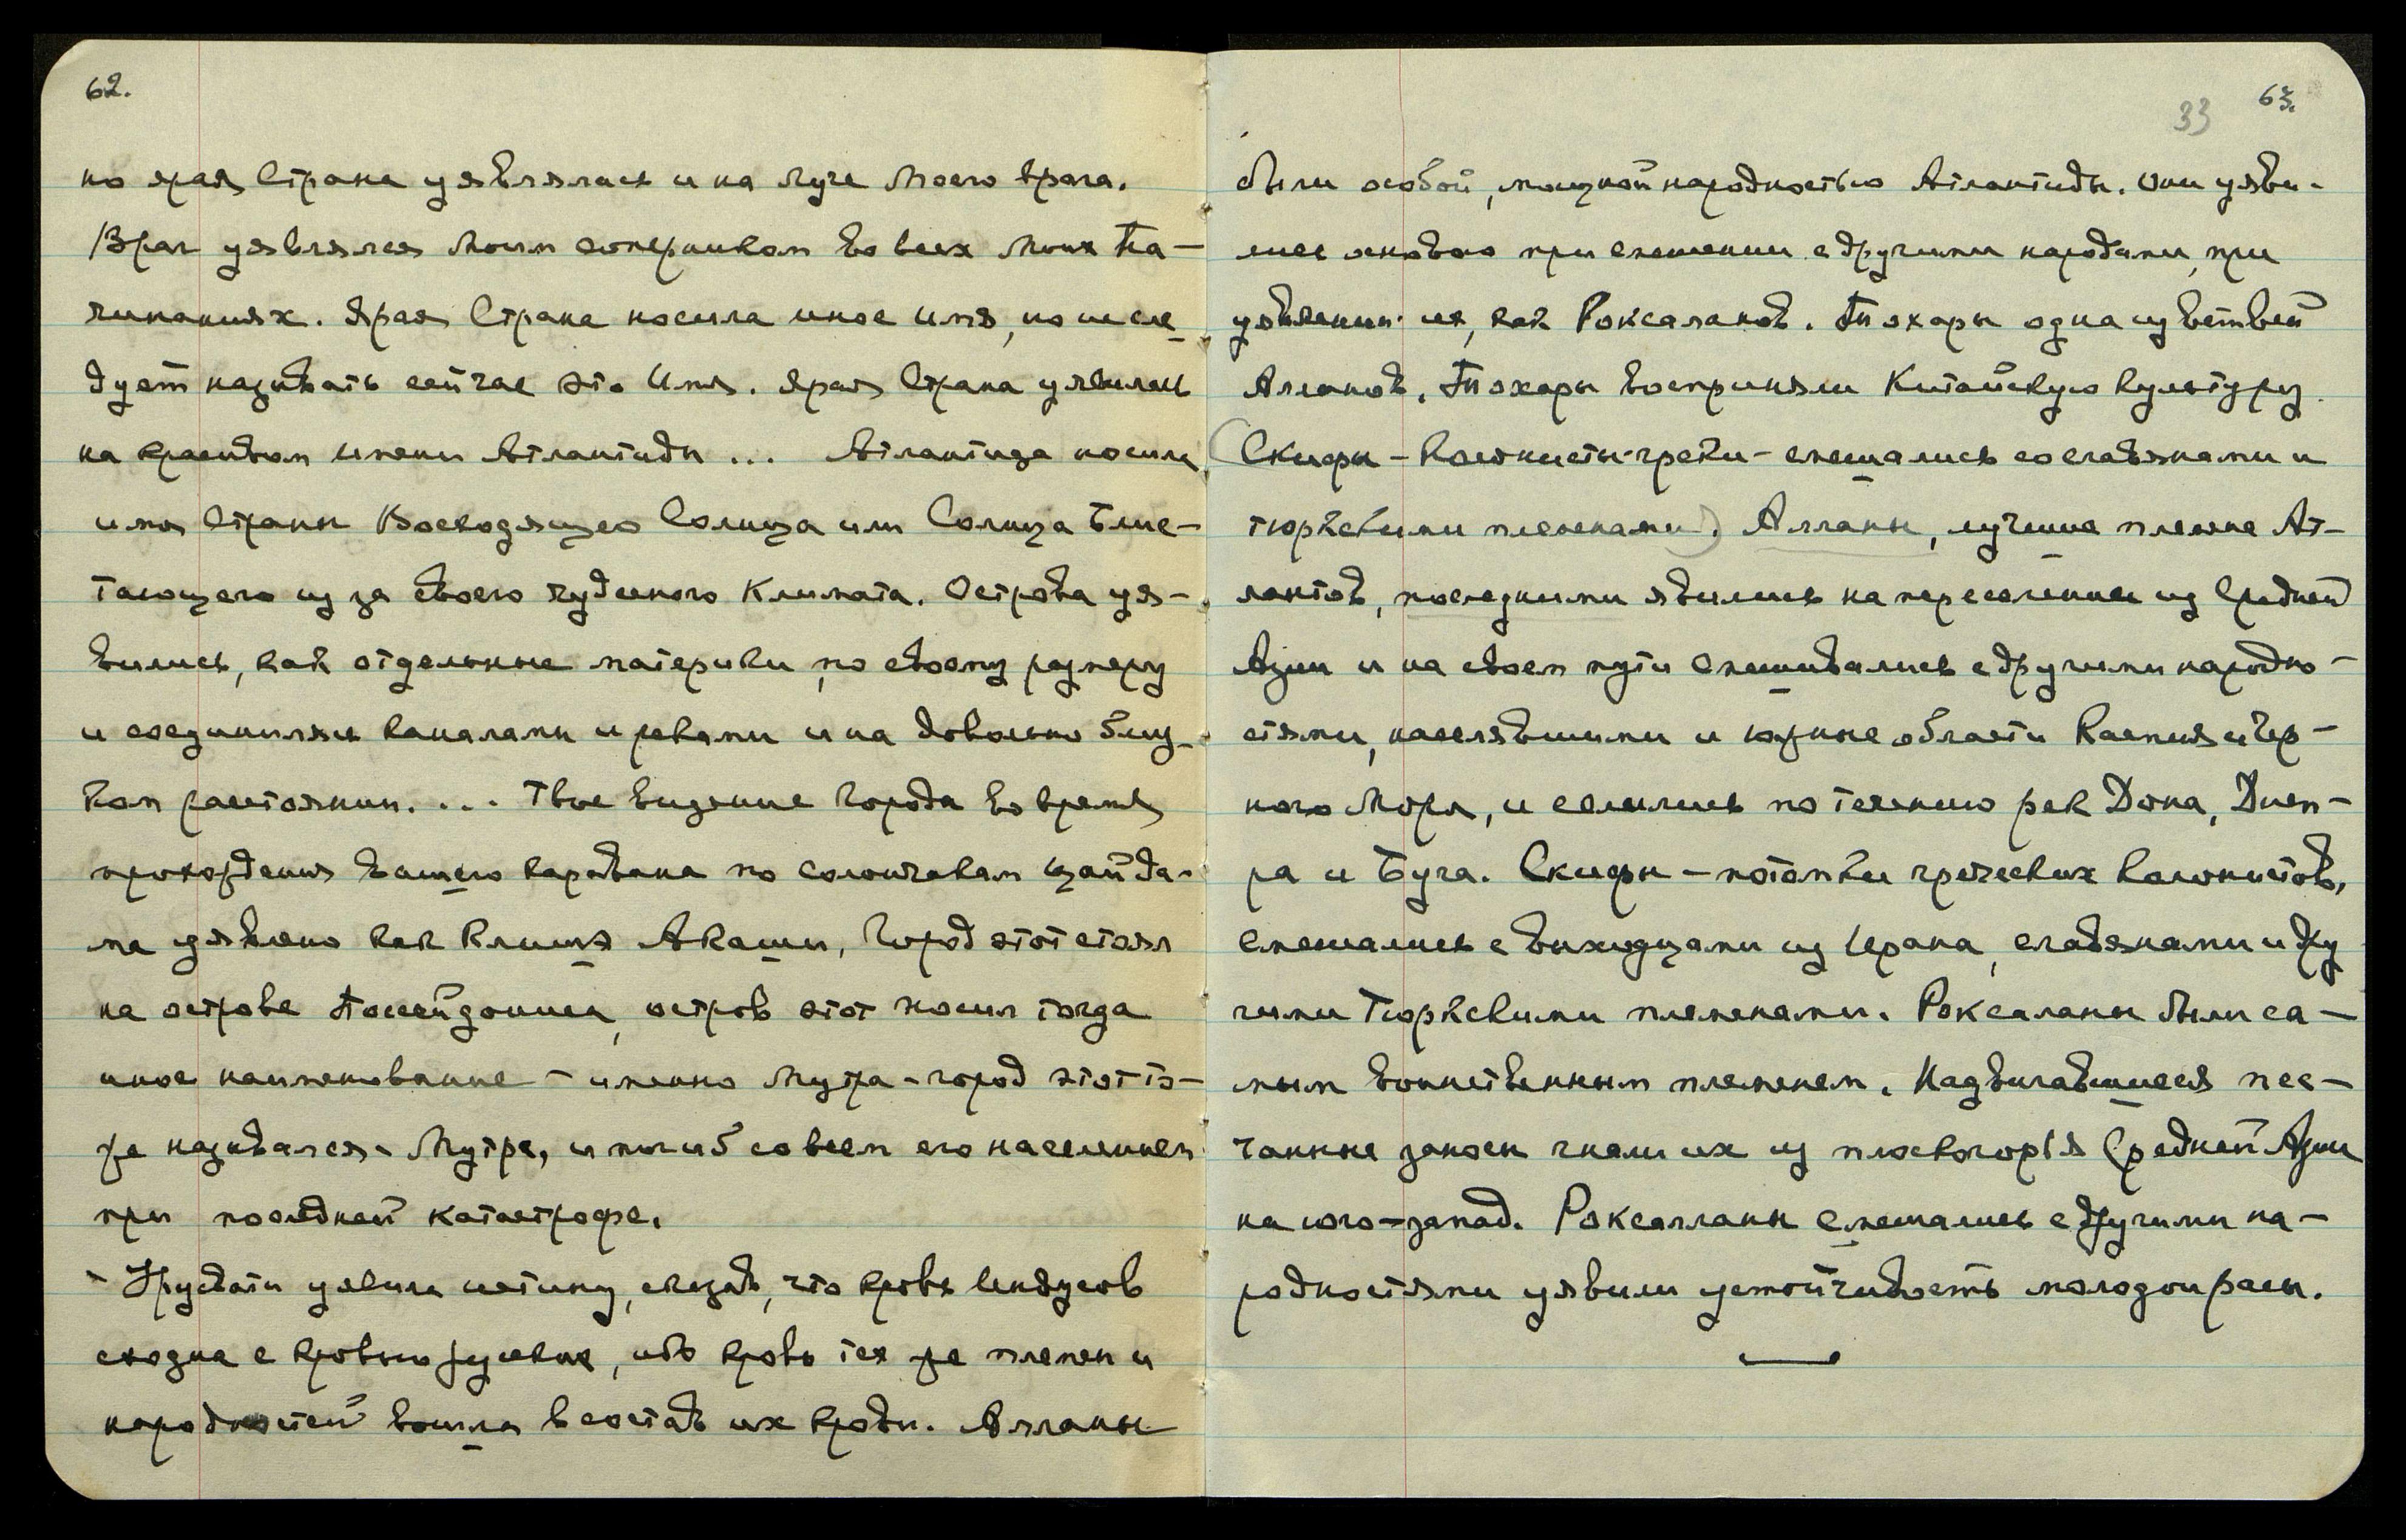 62.
но ярая Страна уявлялась и на Луче Моего врага.
Враг уявлялся Моим соперником во всех Моих На-
чинаниях. Ярая Страна носила иное имя, но не сле-
дует называть сейчас это Имя. Ярая Страна уявилась
на красивом имени Атлантиды ... Атлантида носила
имя Страны Восходящего Солнца или Солнца Блис-
тающего из за своего чудесного Климата. Острова уя-
вились, как отдельные материки, по своему размеру
и соединялись каналами и реками и на довольно близ-
ком расстоянии. ... Твое видение Города во время
прохождения вашего каравана по солончакам Цайда-
ма уявлено как клише Акаши, Город этот стоял
на острове Посейдониса, остров этот носил тогда
иное наименование - именно Мутра - город этот то-
же назывался - Мутре, и погиб со всем его населением
при последней катастрофе.
- Урусвати уявила истину, сказав, что кровь Индусов
сходна с кровью русских, ибо кровь тех же племен и
народностей вошла в состав их крови. Алланы
33 63.
были особой, мощной народностью Атлантиды. Они уяви-
лись основою при смешении с другими народами, при
уявлении их, как Роксаланов. Тохары одна из ветвей
Алланов. Тохары восприняли Китайскую культуру.
(Скифы - колонисты-греки - смешались со славянами и
тюркскими племенами). Алланы, лучшее племя Ат-
лантов, последними явились на переселение из Средней
Азии и на своем пути смешивались с другими народно-
стями, населявшими и южные области Каспия и Чер-
ного Моря, и селились по течению рек Дона, Днеп-
ра и Буга. Скифы - потомки греческих колонистов,
смешались с выходцами из Ирана, славянами и дру
гими Тюркскими племенами. Роксаланы были са-
мым воинственным племенем. Надвигавшиеся пес-
чанные заносы гнали их из плоскогорья Средней Азии
на юго-запад. Роксалланы смешались с другими на-
родностями уявили устойчивость молодой расы.